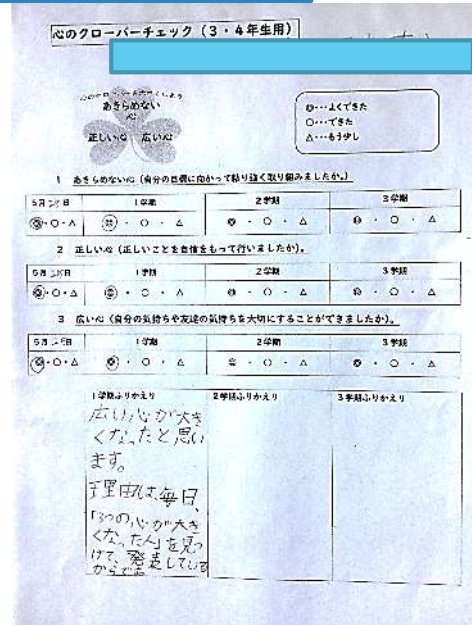 心のクローバーチェック（３・４年生用）
あきらめない
心
正しい心 広い心
◎…よくできた
○…できた
△…もう少し
1 あきらめない心（自分の目標に向かって粘り強く取り組みましたか。）
5月 日 1学期 2学期 3学期
◎・○・△ ◎・○・△ ◎・○・△ ◎・○・△
2 正しい心（正しいことを自信をもって行いましたか）。
5月 日 1学期 2学期 3学期
◎・○・△ ◎・○・△ ◎・○・△ ◎・○・△
3 広い心（自分の気持ちや友達の気持ちを大切にすることができましたか）。
5月 日 1学期 2学期 3学期
◎・○・△ ◎・○・△ ◎・○・△ ◎・○・△
1学期ふりかえり 2学期ふりかえり 3学期ふりかえり
広い心が大き
くなったと思い
ます。
理由は、毎日、
「3つの心が大き
くなった人」を見つ
けて、発表している
からです